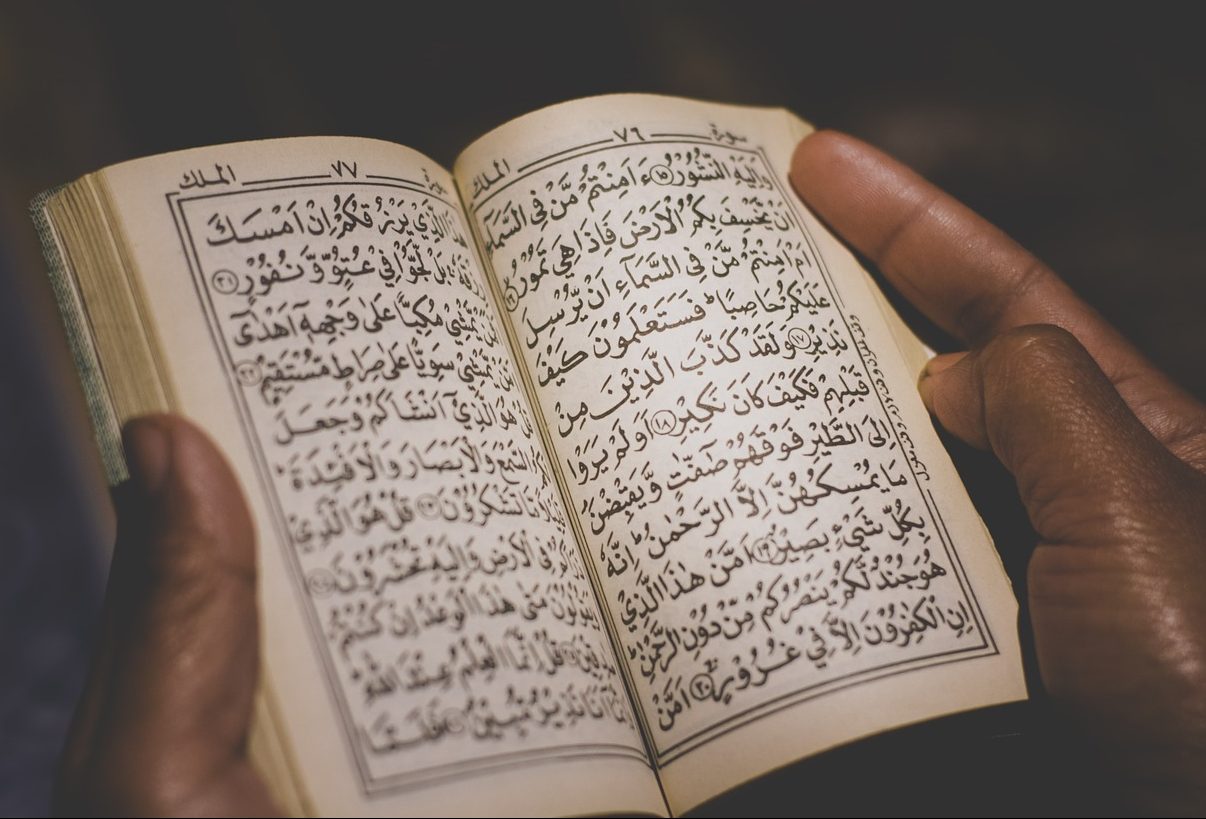 سورة ٧٦ الملك
وَاِلَيْهِ النُّشُوْرُ ﴿١٥﴾ ءَاَمِنْتُمْ مَّنْ فِى السَّمَآءِ
اَنْ يَّخْسِفَ بِكُمُ الْاَرْضَ فَاِذَا هِيَ تَمُوْرُ ﴿١٦﴾
اَمْ اَمِنْتُمْ مَّنْ فِى السَّمَآءِ اَنْ يُّرْسِلَ
عَلَيْكُمْ حَاصِبًا ؕ فَسَتَعْلَمُوْنَ كَيْفَ
نَذِيْرِ ﴿١٧﴾ وَلَقَدْ كَذَّبَ الَّذِيْنَ مِنْ
قَبْلِهِمْ فَكَيْفَ كَانَ نَكِيْرِ ﴿١٨﴾ اَوَلَمْ يَرَوْا
اِلَى الطَّيْرِ فَوْقَهُمْ صٰٓفّٰتٍ وَّيَقْبِضْنَ
مَا يُمْسِكُهُنَّ اِلَّا الرَّحْمٰنُ ؕ اِنَّهٗ
بِكُلِّ شَيْءٍۭ بَصِيْرٌ ﴿١٩﴾ اَمَّنْ هٰذَا الَّذِيْ
هُوَ جُنْدٌ لَّكُمْ يَنْصُرُكُمْ مِّنْ دُوْنِ الرَّحْمٰنِ ؕ
اِنِ الْكٰفِرُوْنَ اِلَّا فِيْ غُرُوْرٍ ﴿٢٠﴾ اَمَّنْ
٧٧ الملك
هٰذَا الَّذِيْ يَرْزُقُكُمْ اِنْ اَمْسَكَ
رِزْقَهٗ ۚ بَلْ لَّجُّوْا فِيْ عُتُوٍّ وَّنُفُوْرٍ ﴿٢١﴾
يَّمْشِيْ مُكِبًّا عَلٰى وَجْهِهٖٓ اَهْدٰٓى
يَّمْشِيْ سَوِيًّا عَلٰى صِرَاطٍ مُّسْتَقِيْمٍ ﴿٢٢﴾
قُلْ هُوَ الَّذِيْٓ اَنْشَاَكُمْ وَجَعَلَ
السَّمْعَ وَالْاَبْصَارَ وَالْاَفْـِٕدَةَ
مَّا تَشْكُرُوْنَ ﴿٢٣﴾ قُلْ هُوَ الَّذِيْ
فِى الْاَرْضِ وَاِلَيْهِ تُحْشَرُوْنَ ﴿٢٤﴾
وَيَقُوْلُوْنَ مَتٰى هٰذَا الْوَعْدُ اِنْ كُنْتُمْ
صٰدِقِيْنَ ﴿٢٥﴾ قُلْ اِنَّمَا الْعِلْمُ عِنْدَ اللّٰهِ
وَاِنَّمَآ اَنَا نَذِيْرٌ مُّبِيْنٌ ﴿٢٦﴾ فَلَمَّا